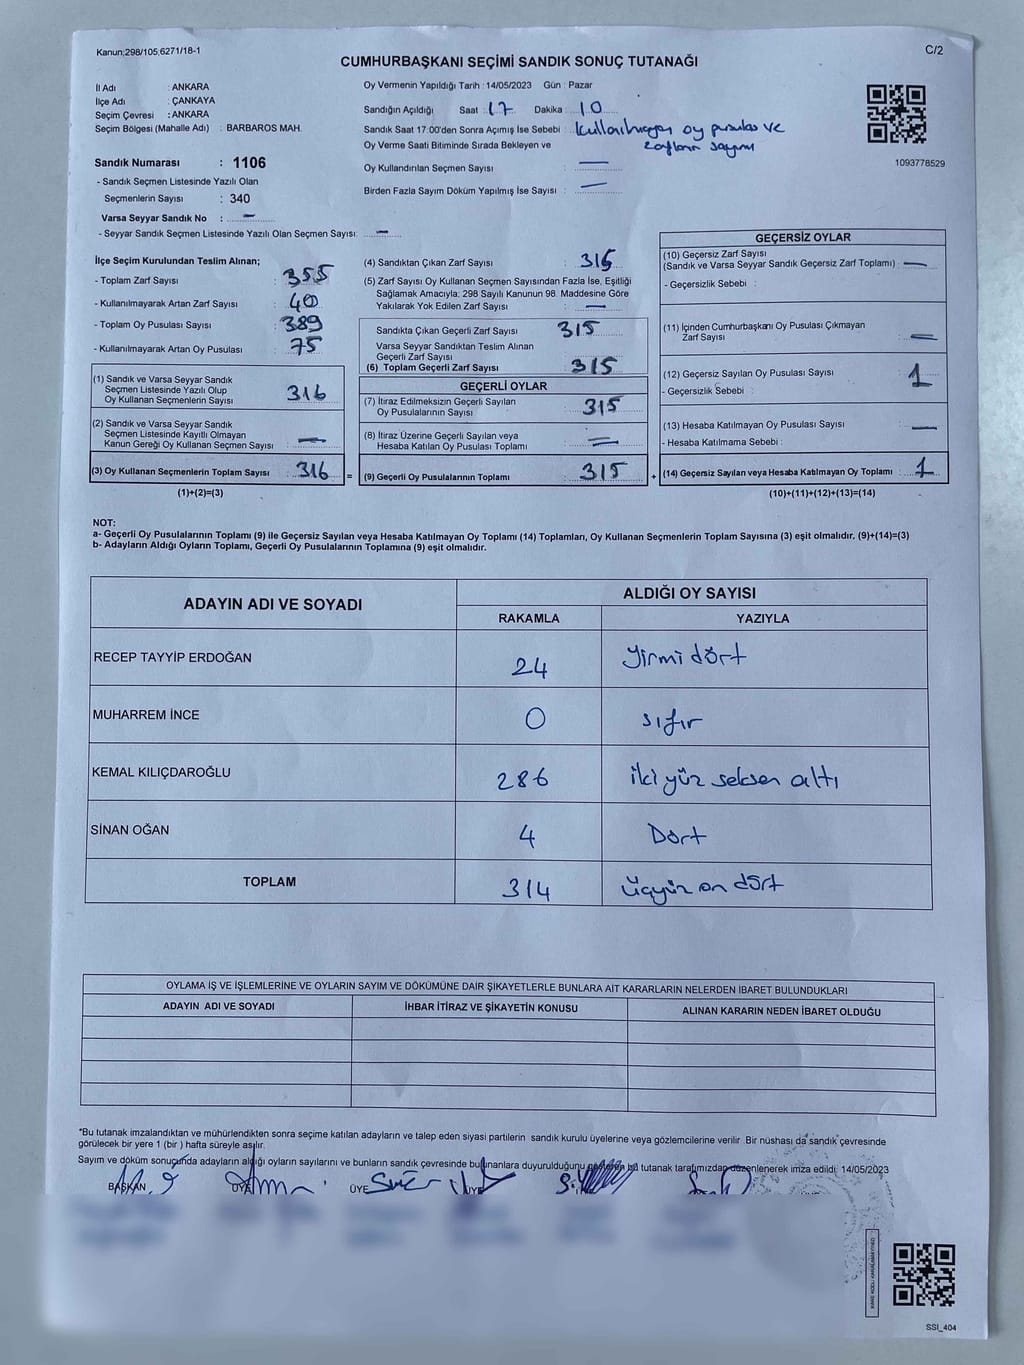 Kanun;298/105,6271/18-1
C/2
CUMHURBAŞKANI SEÇİMİ SANDIK SONUÇ TUTANAĞI
İl Adı : ANKARA
İlçe Adı : ÇANKAYA
Seçim Çevresi : ANKARA
Seçim Bölgesi (Mahalle Adı) : BARBAROS MAH.
Sandık Numarası : 1106
- Sandık Seçmen Listesinde Yazılı Olan
Seçmenlerin Sayısı : 340
Varsa Seyyar Sandık No : -
- Seyyar Sandık Seçmen Listesinde Yazılı Olan Seçmen Sayısı: -
Oy Vermenin Yapıldığı Tarih : 14/05/2023 Gün : Pazar
Sandığın Açıldığı Saat : 17 Dakika : 10
Sandık Saat 17:00'den Sonra Açımış İse Sebebi : Kullanılmayan oy pusulası ve
zarfların sayımı
Oy Verme Saati Bitiminde Sırada Bekleyen ve
Oy Kullandırılan Seçmen Sayısı : -
Birden Fazla Sayım Döküm Yapılmış İse Sayısı : -
1093778529
İlçe Seçim Kurulundan Teslim Alınan;
- Toplam Zarf Sayısı : 355
- Kullanılmayarak Artan Zarf Sayısı : 40
- Toplam Oy Pusulası Sayısı : 389
- Kullanılmayarak Artan Oy Pusulası : 75
(1) Sandık ve Varsa Seyyar Sandık
Seçmen Listesinde Yazılı Olup
Oy Kullanan Seçmenlerin Sayısı : 316
(2) Sandık ve Varsa Seyyar Sandık
Seçmen Listesinde Kayıtlı Olmayan
Kanun Gereği Oy Kullanan Seçmen Sayısı : -
(3) Oy Kullanan Seçmenlerin Toplam Sayısı : 316 =
(1)+(2)=(3)
(4) Sandıktan Çıkan Zarf Sayısı : 315
(5) Zarf Sayısı Oy Kullanan Seçmen Sayısından Fazla İse, Eşitliği
Sağlamak Amacıyla; 298 Sayılı Kanunun 98. Maddesine Göre
Yakılarak Yok Edilen Zarf Sayısı : -
Sandıkta Çıkan Geçerli Zarf Sayısı : 315
Varsa Seyyar Sandıktan Teslim Alınan
Geçerli Zarf Sayısı :
(6) Toplam Geçerli Zarf Sayısı : 315
GEÇERLİ OYLAR
(7) İtiraz Edilmeksizin Geçerli Sayılan
Oy Pusulalarının Sayısı : 315
(8) İtiraz Üzerine Geçerli Sayılan veya
Hesaba Katılan Oy Pusulası Toplamı : -
(9) Geçerli Oy Pusulalarının Toplamı : 315 +
GEÇERSİZ OYLAR
(10) Geçersiz Zarf Sayısı
(Sandık ve Varsa Seyyar Sandık Geçersiz Zarf Toplamı) : -
- Geçersizlik Sebebi :
(11) İçinden Cumhurbaşkanı Oy Pusulası Çıkmayan
Zarf Sayısı : -
(12) Geçersiz Sayılan Oy Pusulası Sayısı : 1
- Geçersizlik Sebebi :
(13) Hesaba Katılmayan Oy Pusulası Sayısı : -
- Hesaba Katılmama Sebebi :
(14) Geçersiz Sayılan veya Hesaba Katılmayan Oy Toplamı : 1
(10)+(11)+(12)+(13)=(14)
NOT:
a- Geçerli Oy Pusulalarının Toplamı (9) ile Geçersiz Sayılan veya Hesaba Katılmayan Oy Toplamı (14) Toplamları, Oy Kullanan Seçmenlerin Toplam Sayısına (3) eşit olmalıdır, (9)+(14)=(3)
b- Adayların Aldığı Oyların Toplamı, Geçerli Oy Pusulalarının Toplamına (9) eşit olmalıdır.
ADAYIN ADI VE SOYADI
ALDIĞI OY SAYISI
RAKAMLA YAZIYLA
RECEP TAYYİP ERDOĞAN 24 yirmi dört
MUHARREM İNCE 0 sıfır
KEMAL KILIÇDAROĞLU 286 iki yüz seksen altı
SİNAN OĞAN 4 Dört
TOPLAM 314 üçyüz on dört
OYLAMA İŞ VE İŞLEMLERİNE VE OYLARIN SAYIM VE DÖKÜMÜNE DAİR ŞİKAYETLERLE BUNLARA AİT KARARLARIN NELERDEN İBARET BULUNDUKLARI
ADAYIN ADI VE SOYADI İHBAR İTİRAZ VE ŞİKAYETİN KONUSU ALINAN KARARIN NEDEN İBARET OLDUĞU
*Bu tutanak imzalandıktan ve mühürlendikten sonra seçime katılan adayların ve talep eden siyasi partilerin sandık kurulu üyelerine veya gözlemcilerine verilir. Bir nüshası da sandık çevresinde
görülecek bir yere 1 (bir ) hafta süreyle asılır.
Sayım ve döküm sonuçunda adayların aldığı oyların sayılarını ve bunların sandık çevresinde bulunanlara duyurulduğunu gösteren bu tutanak tarafımızdan düzenlenerek imza edildi. 14/05/2023
BAŞKAN ÜYE ÜYE ÜYE
SSI_404